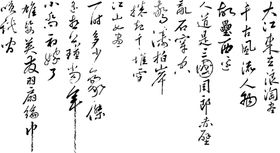 大江東去浪淘尽
千古風流人物
故壘西邊
人道是三國周郎赤壁
亂石穿空
驚濤拍岸
捲起千堆雪
江山如畫
一時多少豪傑
遙想公瑾當年
小喬初嫁了
雄姿英發羽扇綸巾